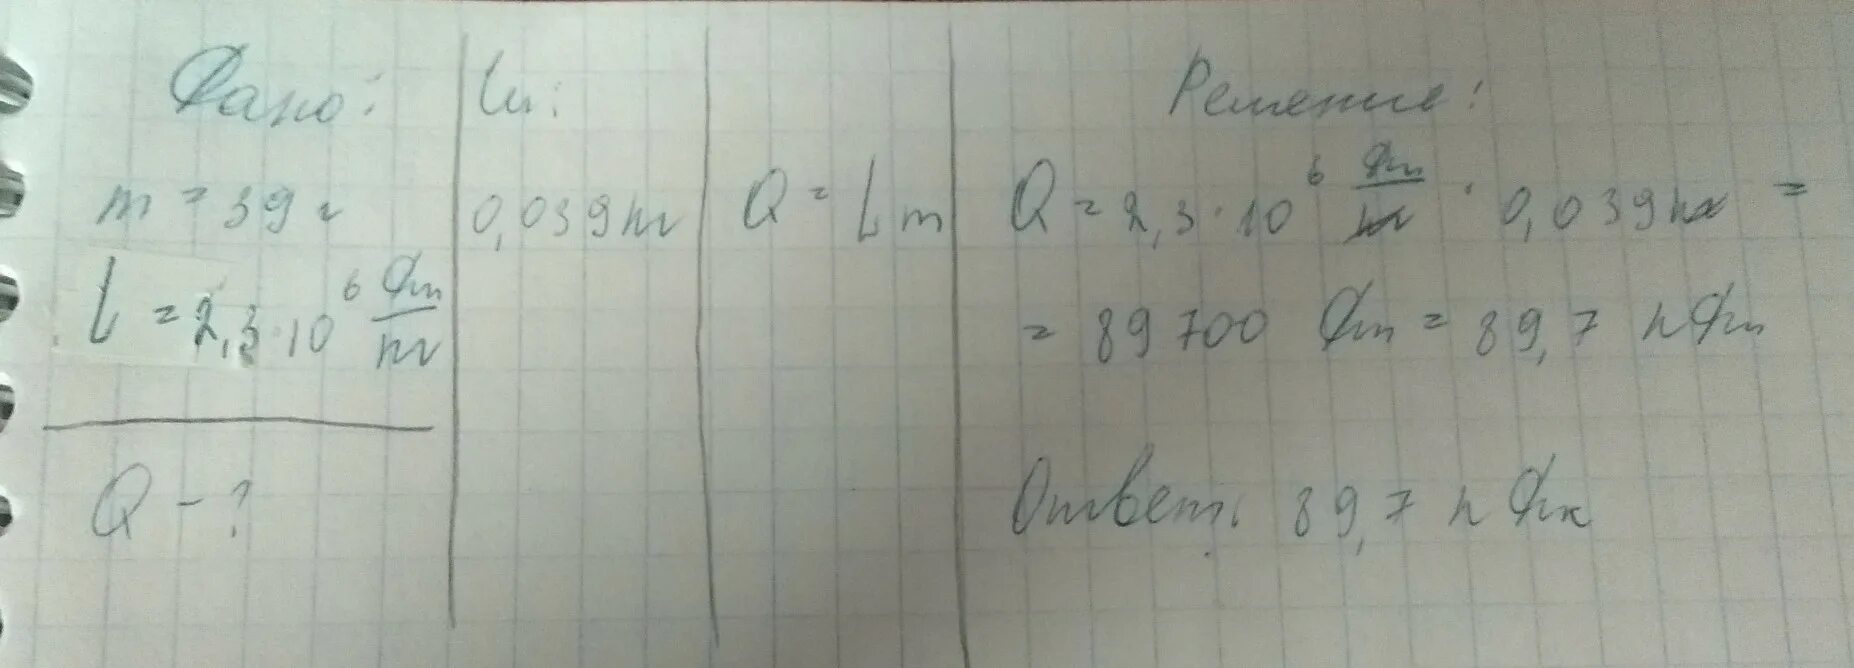 Дано:
m = 39 г
L = 2,3·10⁶ Дж/кг
Q - ?
Си:
0,039 кг
Q = Lm
Решение:
Q = 2,3·10⁶ Дж/кг · 0,039 кг =
= 89700 Дж = 89,7 кДж
Ответ: 89,7 кДж